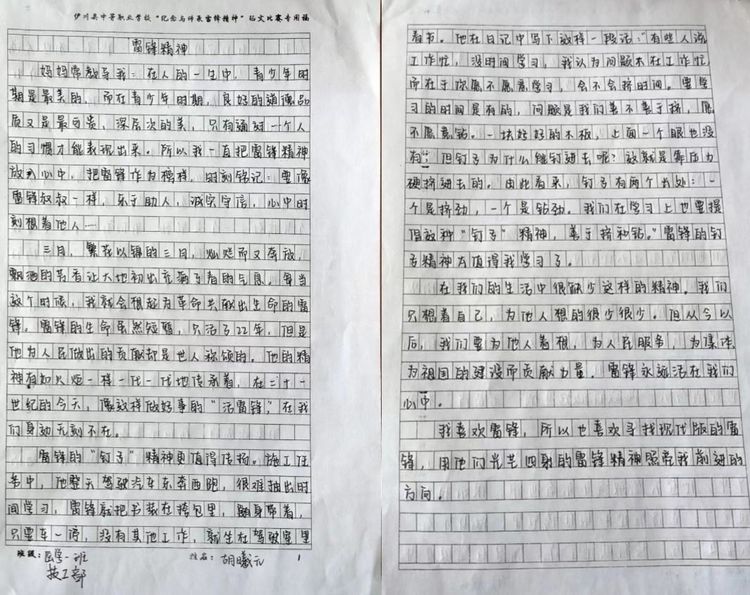 伊川县中等职业学校“纪念与师承雷锋精神”征文比赛专用稿
雷锋精神
妈妈常教导我：在人的一生中，青少年时
期是最美的，而在青少年时期，良好的道德品
质又是最可贵，深层次的美，只有通过一个人
的习惯才能表现出来。所以我一直把雷锋精神
放到心中，把雷锋作为榜样。时刻铭记：要像
雷锋叔叔一样，乐于助人，诚实守信，心中时
刻想着他人……
三月，繁花似锦的三月，灿烂而又奔放，
飘洒的芳香让大地初出充满了春的气息，每当
这个时候，我就会想起为革命贡献出生命的雷
锋。雷锋的生命虽然短暂，只活了22年，但是
他为人民做出的贡献却是世人称颂的，他的精
神有如火炬一样一代一代地传承着，在二十一
世纪的今天，像这样做好事的“活雷锋”，在我
们身边无刻不在。
雷锋的“钉子”精神更值得传扬。施工任
务中，他整天驾驶汽车东奔西跑，很难抽出时
间学习，雷锋就把书装在挎包里，随身带着，
只要车一停，没有其他工作，就坐在驾驶室里
班级：医学一班
技工部
姓名：胡曦元
1
看书。他在日记中写下这样一段话：“有些人说
工作忙，没时间学习，我认为问题不在工作忙，
而在于你愿不愿意学习，会不会挤时间。要学
习的时间是有的，问题是我们善不善于挤，愿
不愿意钻。一块好好的木板，上面一个眼也没
有，但钉子为什么能钉进去呢？这就是靠压力
硬挤进去的。由此看来，钉子有两个长处：一
个是挤劲，一个是钻劲。我们在学习上也要提
倡这种“钉子”精神，善于挤和钻。”雷锋的钉
子精神太值得我学习了。
在我们的生活中很缺少这样的精神。我们
只想着自己，为他人想的很少很少。但从今以
后，我们要为他人着想，为人民服务，为集体
为祖国的建设而贡献力量，雷锋永远活在我们
心中。
我喜欢雷锋，所以也喜欢寻找现代版的雷
锋，用他们光芒四射的雷锋精神照亮我前进的
方向。